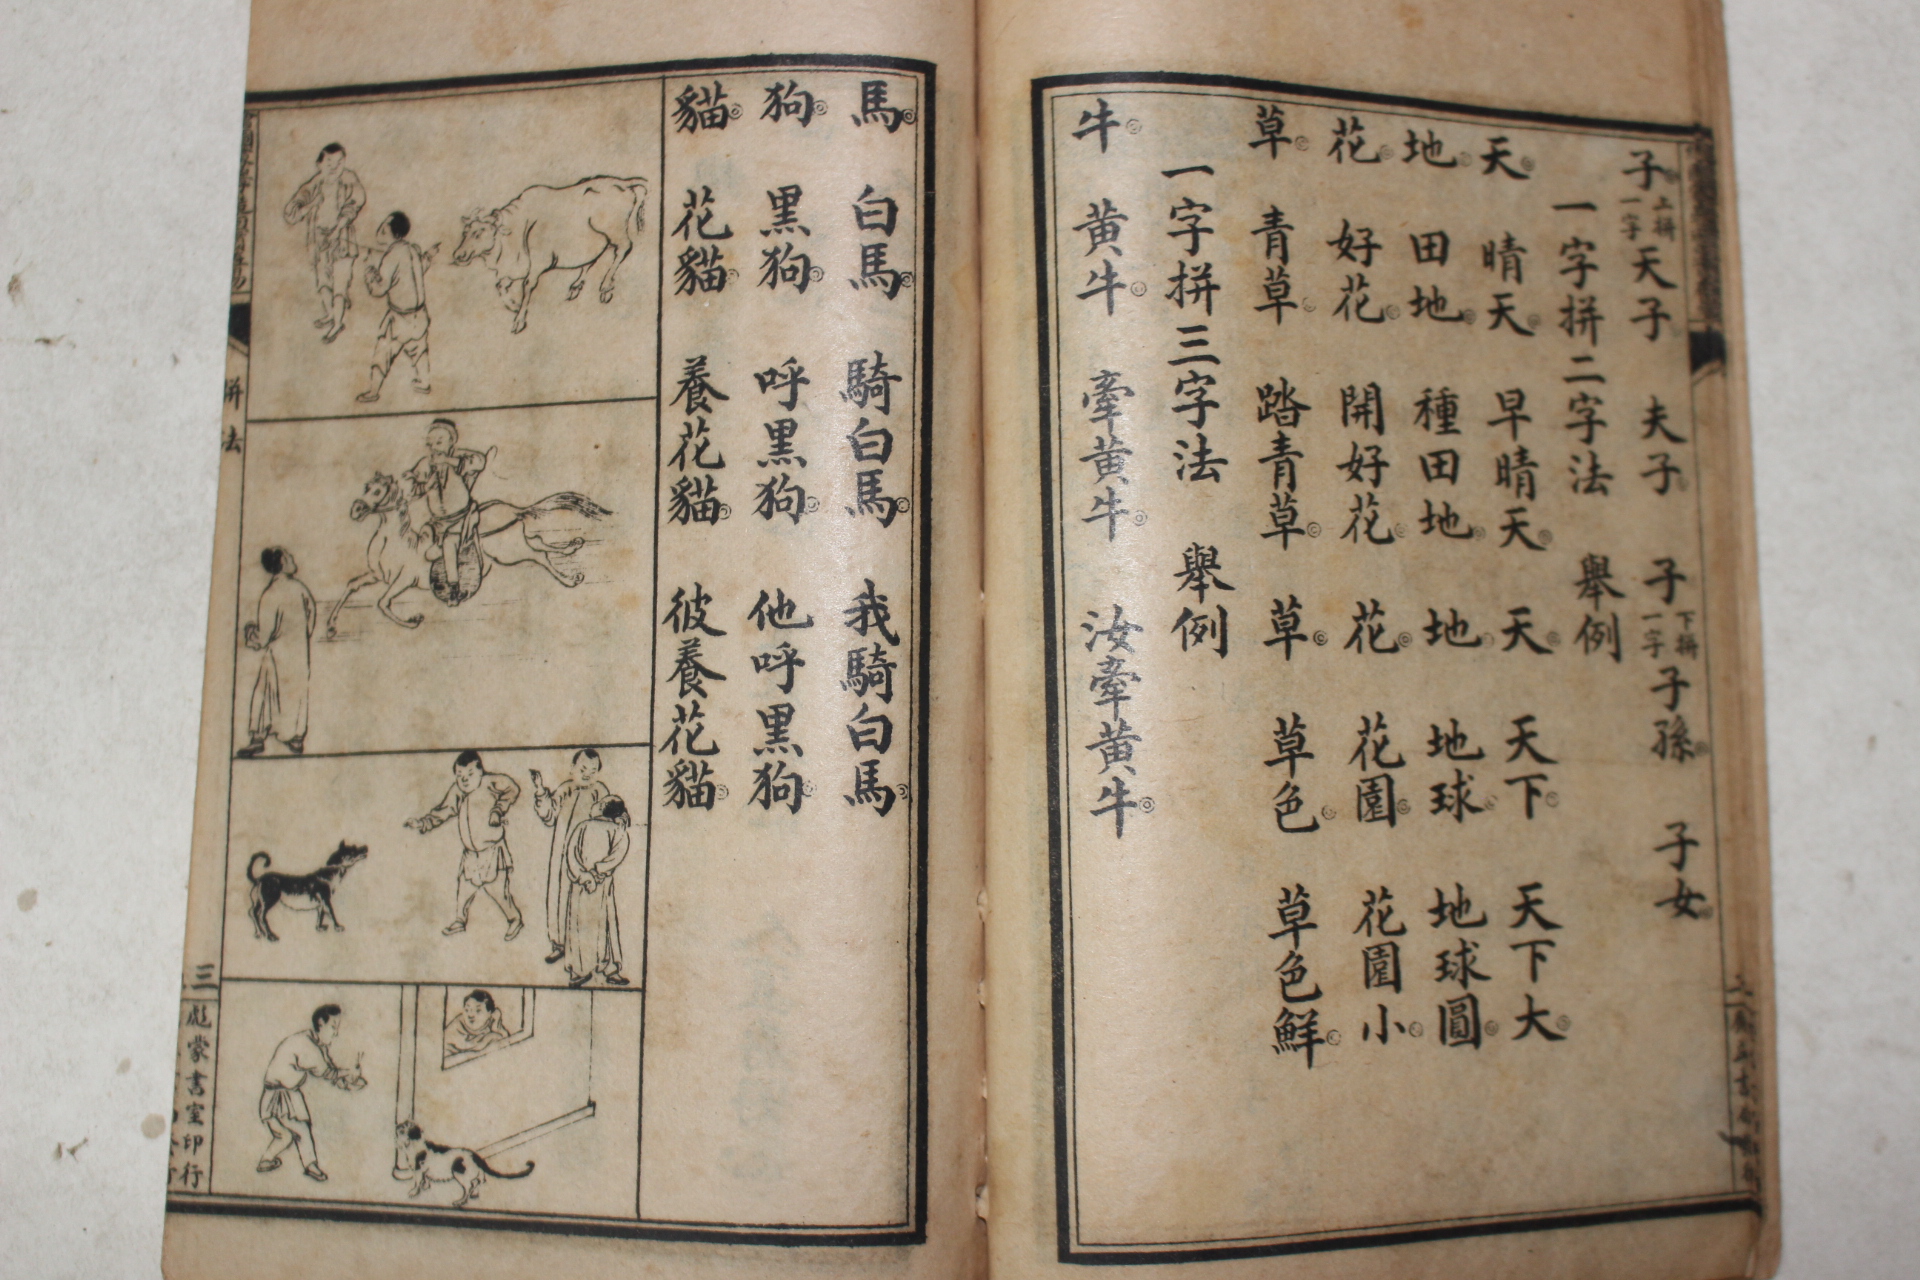 子 上拼一字 天子 夫子 子 下拼一字 子孫 子女
一字拼二字法 舉例
天 晴天 早晴天 天 天下 天下大
地 田地 種田地 地 地球 地球圓
花 好花 開好花 花 花園 花園小
草 青草 踏青草 草 草色 草色鮮
一字拼三字法 舉例
牛 黃牛 牽黃牛 汝牽黃牛
馬 白馬 騎白馬 我騎白馬
狗 黑狗 呼黑狗 他呼黑狗
貓 花貓 養花貓 彼養花貓
拼法
三
彪蒙書室印行